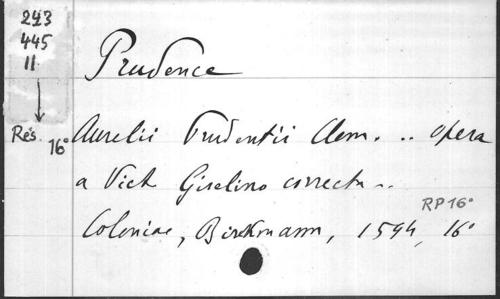 243
445
11
Rés. 16°
Prudence
Aurelii Prudentii Clem. .. opera
a Vict Giselino correcta..
RP 16°
Coloniae, Birkmann, 1594, 16°